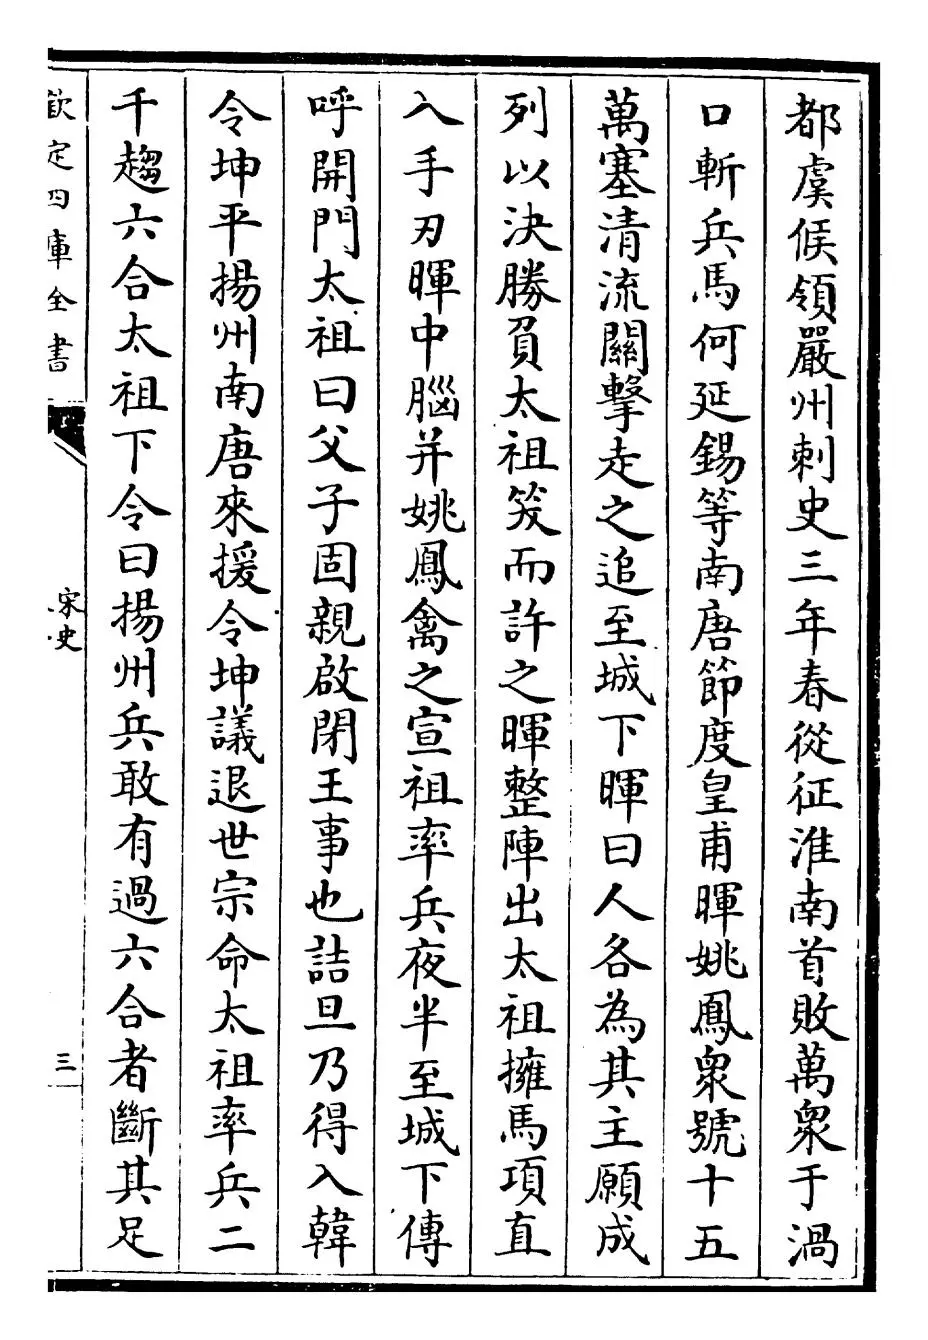 都虞候領嚴州刺史三年春從征淮南首敗萬衆于渦
口斬兵馬何延錫等南唐節度皇甫暉姚鳳衆號十五
萬塞清流關擊走之追至城下暉曰人各為其主願成
列以決勝負太祖笑而許之暉整陣出太祖擁馬項直
入手刃暉中腦并姚鳳禽之宣祖率兵夜半至城下傳
呼開門太祖曰父子固親啟閉王事也詰旦乃得入韓
令坤平揚州南唐來援令坤議退世宗命太祖率兵二
千趨六合太祖下令曰揚州兵敢有過六合者斷其足
欽定四庫全書
宋史
三